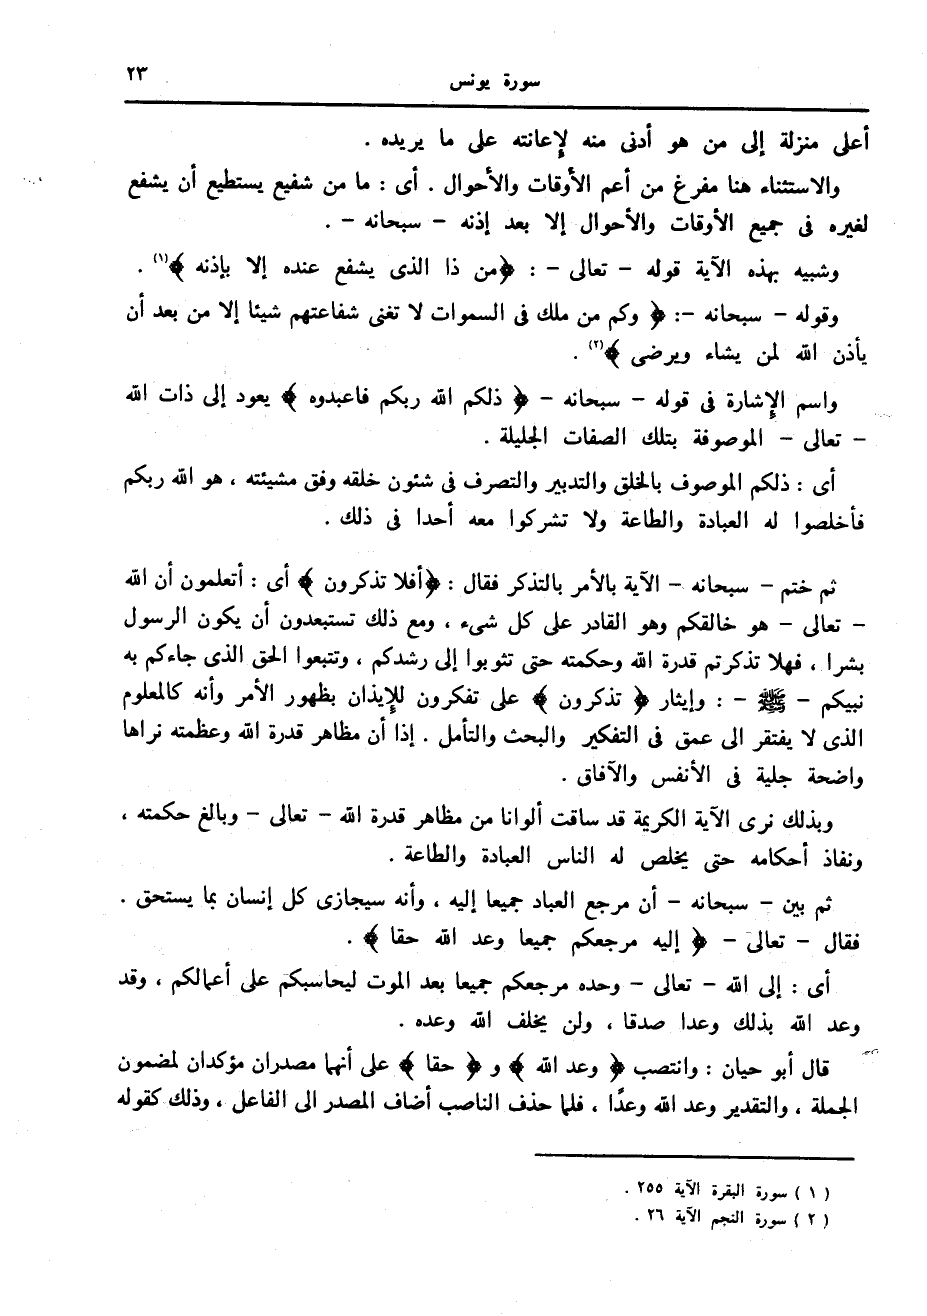 سورة يونس
٢٣
أعلى منزلة إلى من هو أدنى منه لإعانته على ما يريده .
والاستثناء هنا مفرغ من أعم الأوقات والأحوال . أى : ما من شفيع يستطيع أن يشفع
لغيره فى جميع الأوقات والأحوال إلا بعد إذنه – سبحانه – .
وشبيه بهذه الآية قوله – تعالى – : ﴿من ذا الذى يشفع عنده إلا بإذنه ﴾(١) .
وقوله – سبحانه –: ﴿ وكم من ملك فى السموات لا تغنى شفاعتهم شيئا إلا من بعد أن
يأذن الله لمن يشاء ويرضى ﴾(٢) .
واسم الإشارة فى قوله – سبحانه – ﴿ ذلكم الله ربكم فاعبدوه ﴾ يعود إلى ذات الله
– تعالى – الموصوفة بتلك الصفات الجليلة .
أى : ذلكم الموصوف بالخلق والتدبير والتصرف فى شئون خلقه وفق مشيئته ، هو الله ربكم
فأخلصوا له العبادة والطاعة ولا تشركوا معه أحدا فى ذلك .
ثم ختم – سبحانه – الآية بالأمر بالتذكر فقال : ﴿أفلا تذكرون ﴾ أى : أتعلمون أن الله
– تعالى – هو خالقكم وهو القادر على كل شىء ، ومع ذلك تستبعدون أن يكون الرسول
بشرا ، فهلا تذكرتم قدرة الله وحكمته حتى تثوبوا إلى رشدكم ، وتتبعوا الحق الذى جاءكم به
نبيكم – ﷺ – : وإيثار ﴿ تذكرون ﴾ على تفكرون للإيذان بظهور الأمر وأنه كالمعلوم
الذى لا يفتقر الى عمق فى التفكير والبحث والتأمل . إذا أن مظاهر قدرة الله وعظمته نراها
واضحة جلية فى الأنفس والآفاق .
وبذلك نرى الآية الكريمة قد ساقت ألوانا من مظاهر قدرة الله – تعالى – وبالغ حكمته ،
ونفاذ أحكامه حتى يخلص له الناس العبادة والطاعة .
ثم بين – سبحانه – أن مرجع العباد جميعا إليه ، وأنه سيجازى كل إنسان بما يستحق .
فقال – تعالى – ﴿ إليه مرجعكم جميعا وعد الله حقا ﴾ .
أى : إلى الله – تعالى – وحده مرجعكم جميعا بعد الموت ليحاسبكم على أعمالكم ، وقد
وعد الله بذلك وعدا صدقا ، ولن يخلف الله وعده .
قال أبو حيان : وانتصب ﴿ وعد الله ﴾ و ﴿ حقا ﴾ على أنهما مصدران مؤكدان لمضمون
الجملة ، والتقدير وعد الله وعدًا ، فلما حذف الناصب أضاف المصدر الى الفاعل ، وذلك كقوله
( ١ ) سورة البقرة الآية ٢٥٥ .
( ٢ ) سورة النجم الآية ٢٦ .